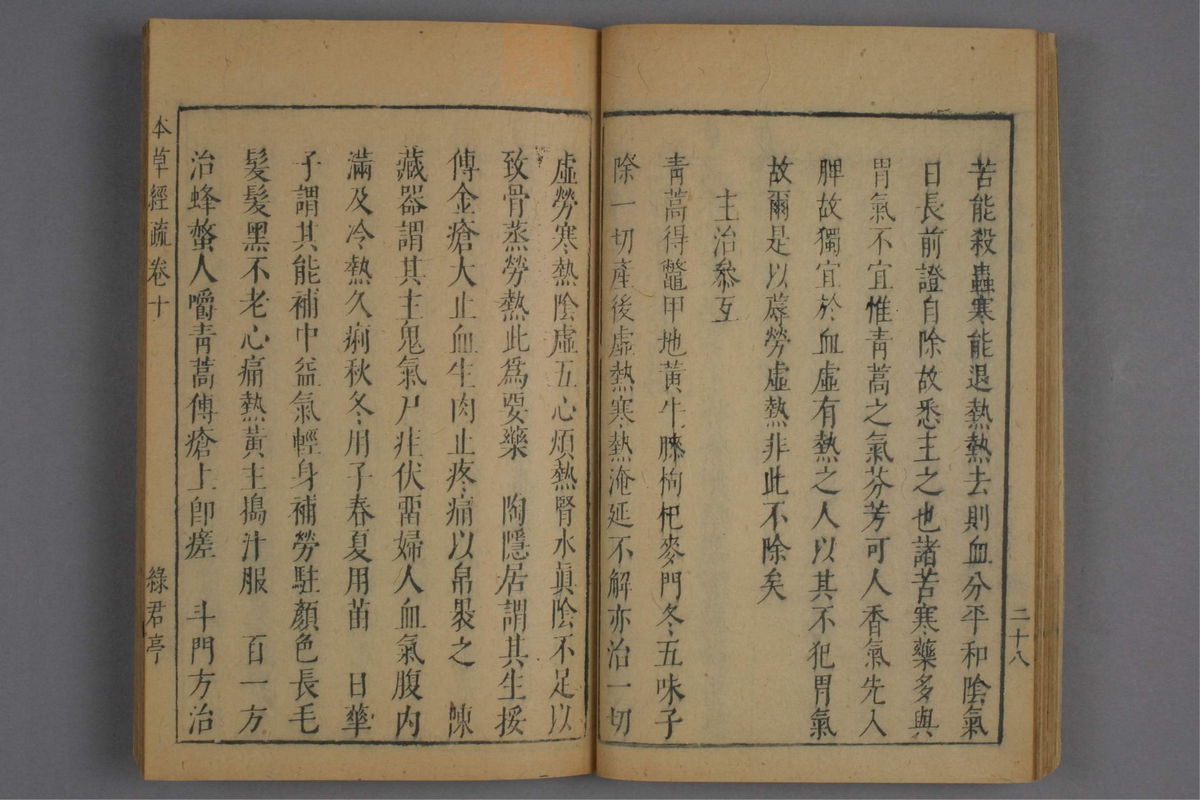 苦能殺蟲寒能退熱熱去則血分平和陰氣
日長前證自除故悉主之也諸苦寒藥多與
胃氣不宜惟青蒿之氣芬芳可人香氣先入
脾故獨宜於血虛有熱之人以其不犯胃氣
故爾是以蓐勞虛熱非此不除矣
主治叅互
青蒿得鼈甲地黃牛膝枸杞麥門冬五味子
除一切產後虛熱寒熱淹延不解亦治一切
二十八
虛勞寒熱陰虛五心煩熱腎水眞陰不足以
致骨蒸勞熱此爲要藥　陶隱居謂其生挼
傅金瘡大止血生肉止疼痛以帛褁之　陳
藏器謂其主鬼氣尸疰伏畱婦人血氣腹內
滿及冷熱久痢秋冬用子春夏用苗　日華
子謂其能補中益氣輕身補勞駐顏色長毛
髮髮黑不老心痛熱黃主搗汁服　百一方
治蜂螫人嚼青蒿傅瘡上卽瘥　斗門方治
本草經疏卷十
綠君亭